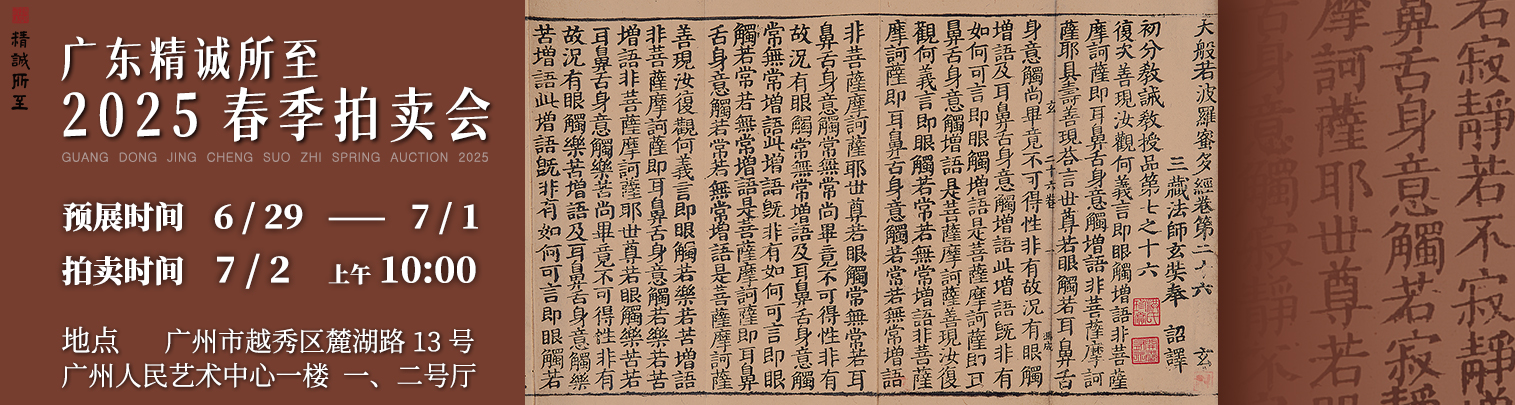 精誠所至
广东精诚所至
2025 春季拍卖会
GUANG DONG JING CHENG SUO ZHI SPRING AUCTION 2025
预展时间 6 / 29 —— 7 / 1
拍卖时间 7 / 2 上午 10:00
地点 广州市越秀区麓湖路 13 号
广州人民艺术中心一楼 一、二号厅
大般若波羅蜜多經卷第二十六 玄
三藏法師玄奘奉 詔譯
初分教誡教授品第七之十六
復次善現汝觀何義言即眼觸增語非菩薩
摩訶薩即耳鼻舌身意觸增語非菩薩摩訶
薩耶具壽善現答言世尊若眼觸若耳鼻舌
身意觸尚畢竟不可得性非有故況有眼觸
增語及耳鼻舌身意觸增語此增語既非有
如何可言即眼觸增語是菩薩摩訶薩即耳
鼻舌身意觸增語是菩薩摩訶薩善現汝復
觀何義言即眼觸若常若無常增語非菩薩
摩訶薩即耳鼻舌身意觸若常若無常增語
非菩薩摩訶薩耶世尊若眼觸常無常若耳
鼻舌身意觸常無常尚畢竟不可得性非有
故況有眼觸常無常增語及耳鼻舌身意觸
常無常增語此增語既非有如何可言即眼
觸若常若無常增語是菩薩摩訶薩即耳鼻
舌身意觸若常若無常增語是菩薩摩訶薩
善現汝復觀何義言即眼觸若樂若苦增語
非菩薩摩訶薩即耳鼻舌身意觸若樂若苦
增語非菩薩摩訶薩耶世尊若眼觸樂苦若
耳鼻舌身意觸樂苦尚畢竟不可得性非有
故況有眼觸樂苦增語及耳鼻舌身意觸樂
苦增語此增語既非有如何可言即眼觸若
若寂靜若不寂靜增
鼻舌身意觸若寂靜
摩訶薩耶世尊若
舌身意觸寂靜不